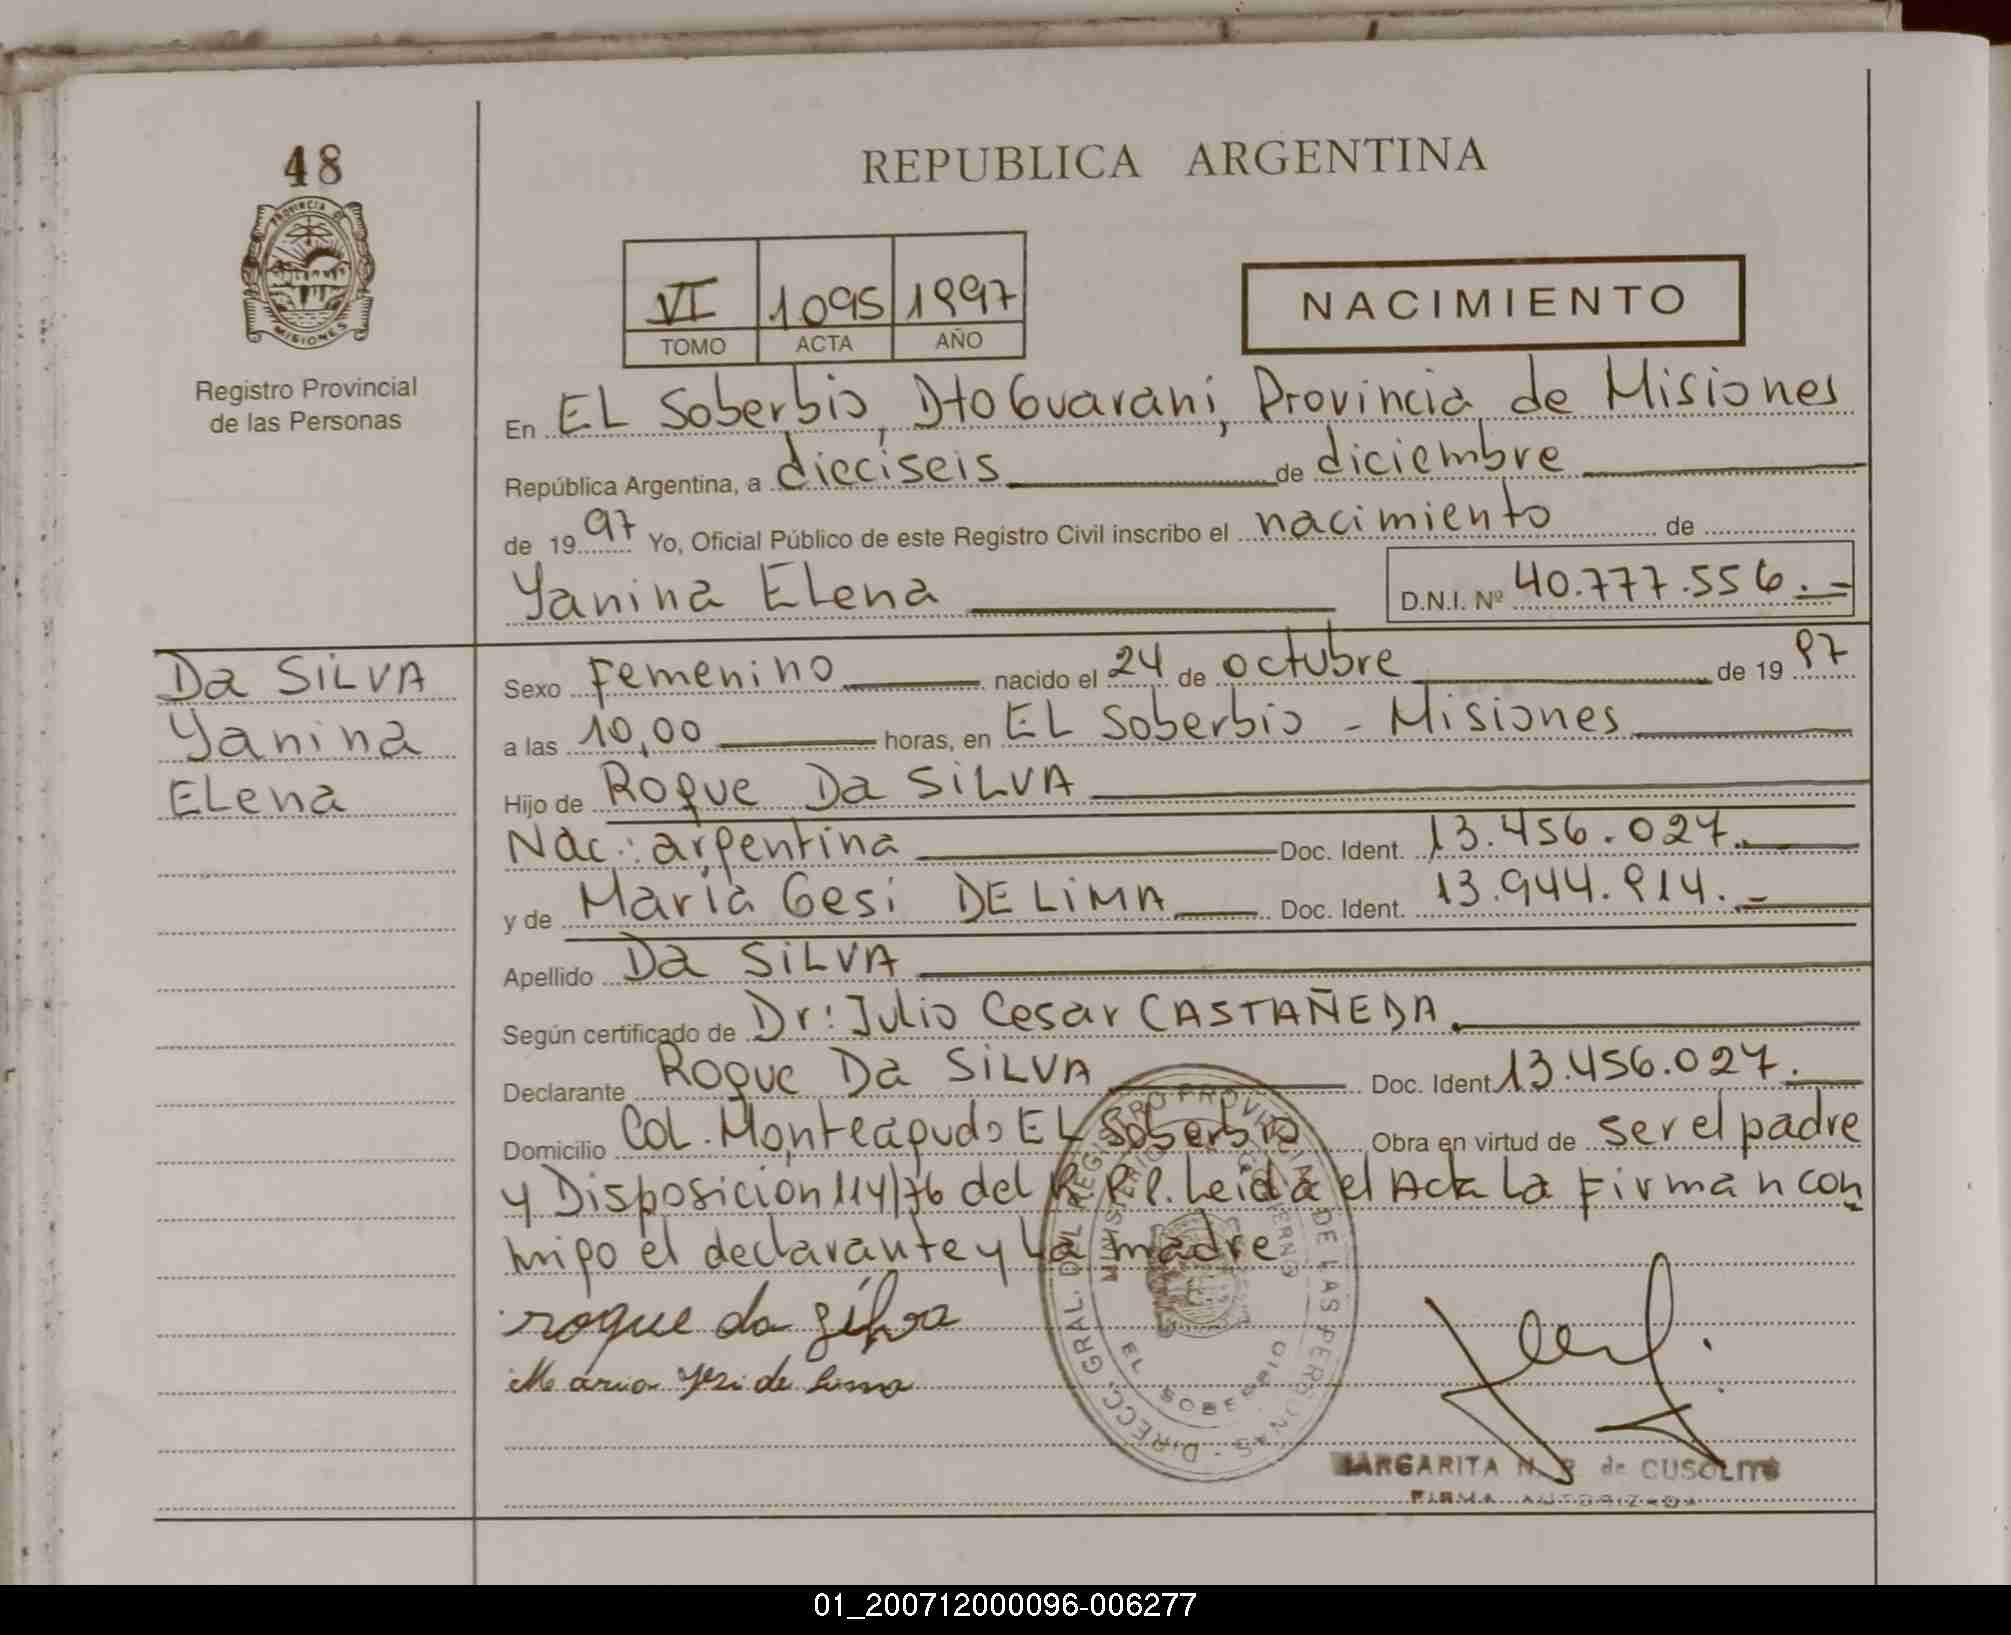 48
PROVINCIA DE
MISIONES
Registro Provincial
de las Personas
REPUBLICA ARGENTINA
VI 1095 1997
TOMO ACTA AÑO
NACIMIENTO
En EL Soberbio, Dto Guaraní, Provincia de Misiones
República Argentina, a dieciseis de diciembre
de 1997 Yo, Oficial Público de este Registro Civil inscribo el nacimiento de
Yanina ELena D.N.I. Nº 40.777.556.-
Da SiLVA
Yanina
ELena
Sexo Femenino nacido el 24 de octubre de 1997
a las 10,00 horas, en EL Soberbio - Misiones
Hijo de Roque Da SiLVA
Nac.: argentina Doc. Ident. 13.456.027.
y de María Gesi DE LiMA Doc. Ident. 13.944.914.-
Apellido Da SiLVA
Según certificado de Dr: Julio Cesar CASTAÑEDA.
Declarante Roque Da SiLVA Doc. Ident 13.456.027.
Domicilio CoL. Monteagudo EL Soberbio Obra en virtud de ser el padre
y Disposición 114/76 del R.P.P. Leida el Acta La Firman con
migo el declarante y La madre
roque da silva
Maria Jesi de Lima
DIRECC. GRAL. DEL REGISTRO PROVINCIAL DE LAS PERSONAS
MINISTERIO GOBIERNO
EL SOBERBIO
MARGARITA N. de CUSOLITO
FIRMA AUTORIZADA
01_200712000096-006277